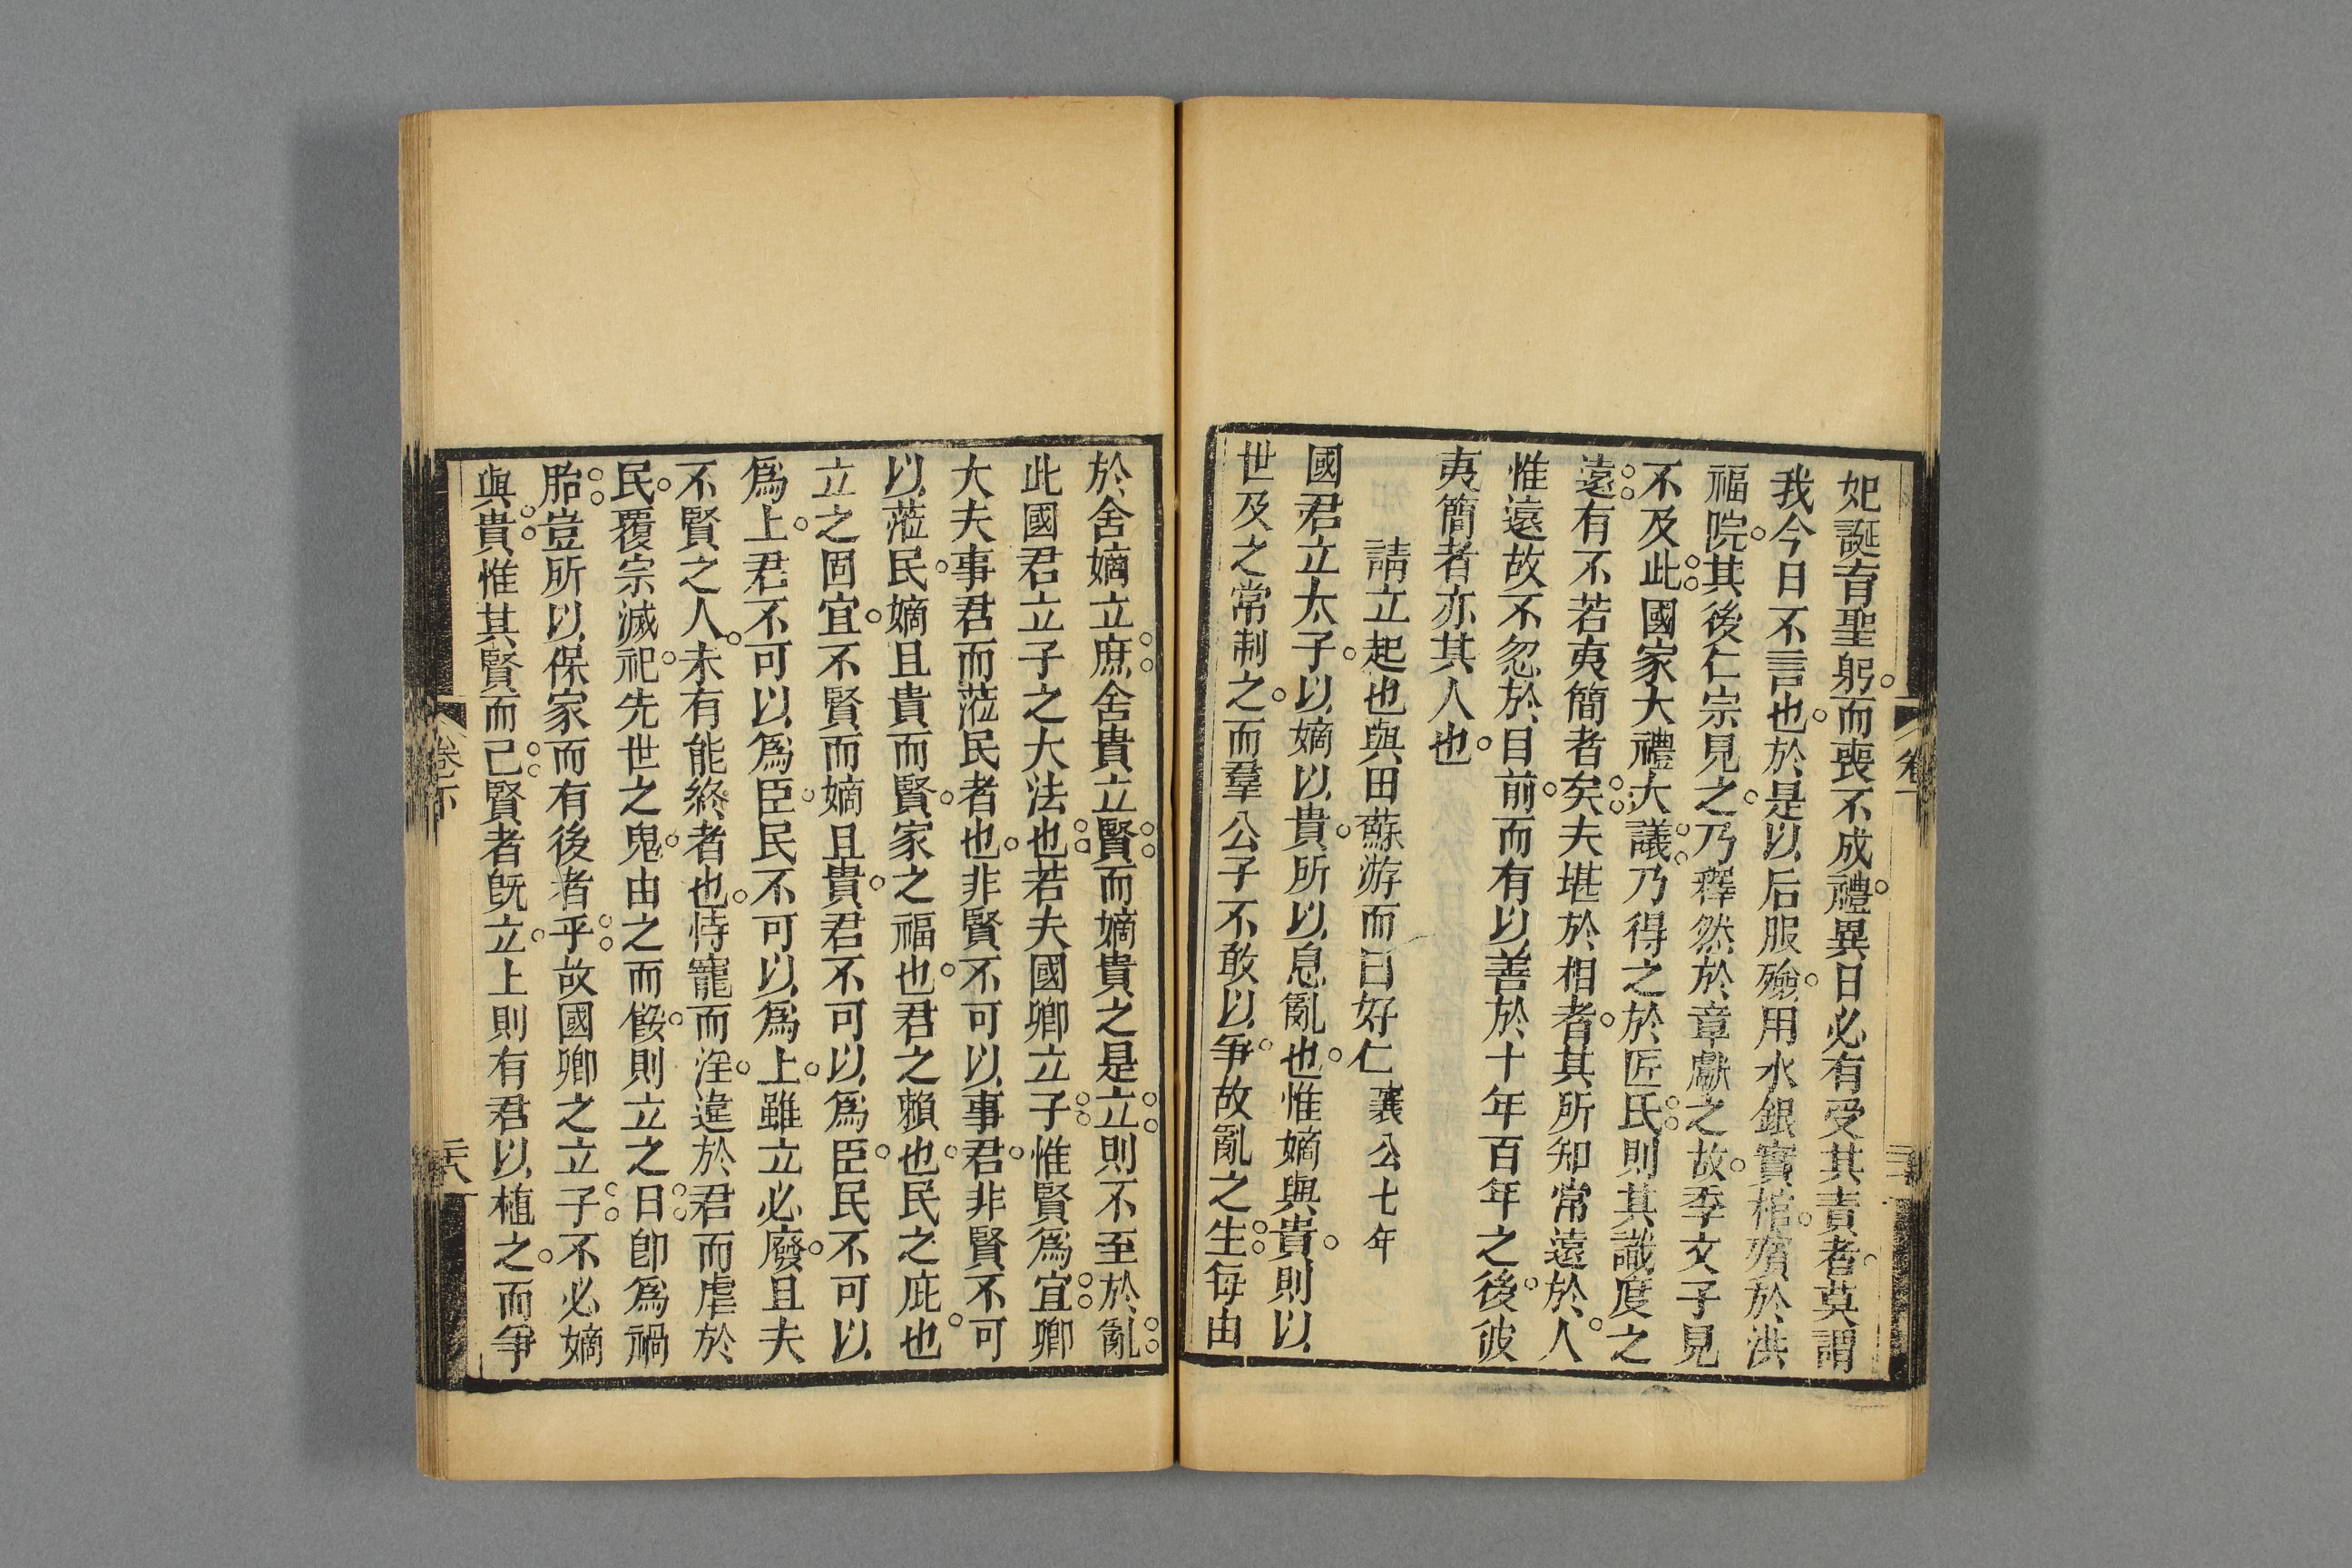 妃誕育聖躬而喪不成禮異日必有受其責者莫謂
我今日不言也於是以后服殮用水銀實棺殯於洪
福院其後仁宗見之乃釋然於章獻之故季文子見
不及此國家大禮大議乃得之於匠氏則其識度之
遠有不若夷簡者矣夫堪於相者其所知常遠於人
惟遠故不忽於目前而有以善於十年百年之後彼
夷簡者亦其人也
請立起也與田蘇游而曰好仁 襄公七年
國君立太子以嫡以貴所以息亂也惟嫡與貴則以
世及之常制之而羣公子不敢以爭故亂之生每由
於舍嫡立庶舍貴立賢而嫡貴之是立則不至於亂
此國君立子之大法也若夫國卿立子惟賢爲宜卿
大夫事君而蒞民者也非賢不可以事君非賢不可
以蒞民嫡且貴而賢家之福也君之賴也民之庇也
立之固宜不賢而嫡且貴君不可以爲臣民不可以
爲上君不可以爲臣民不可以爲上雖立必廢且夫
不賢之人未有能終者也恃寵而淫違於君而虐於
民覆宗滅祀先世之鬼由之而餒則立之日卽爲禍
胎豈所以保家而有後者乎故國卿之立子不必嫡
與貴惟其賢而已賢者旣立上則有君以植之而爭
卷下